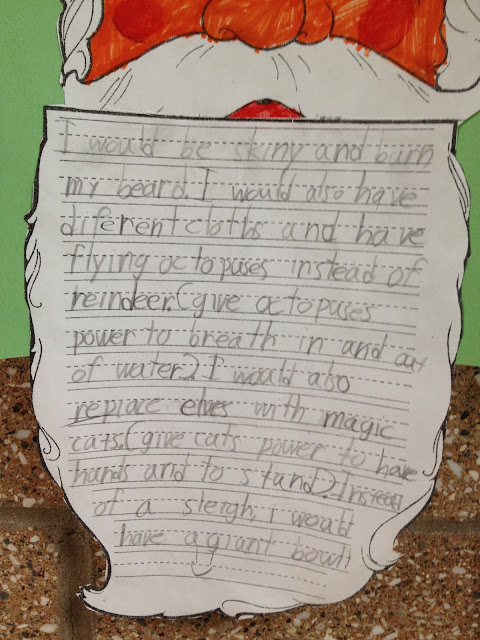 I would be skiny and burn
my beard. I would also have
diferent cloths and have
flying octopuses instead of
reindeer. (give octopuses
power to breath in and out
of water.) I would also
replace elves with magic
cats. (give cats power to have
hands and to stand.) Instead
of a sleigh, i would
have a giant bowl!